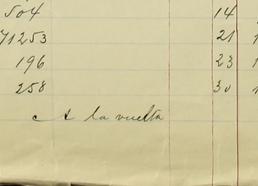 504 14
71253 21
196 23
258 30
A la vuelta